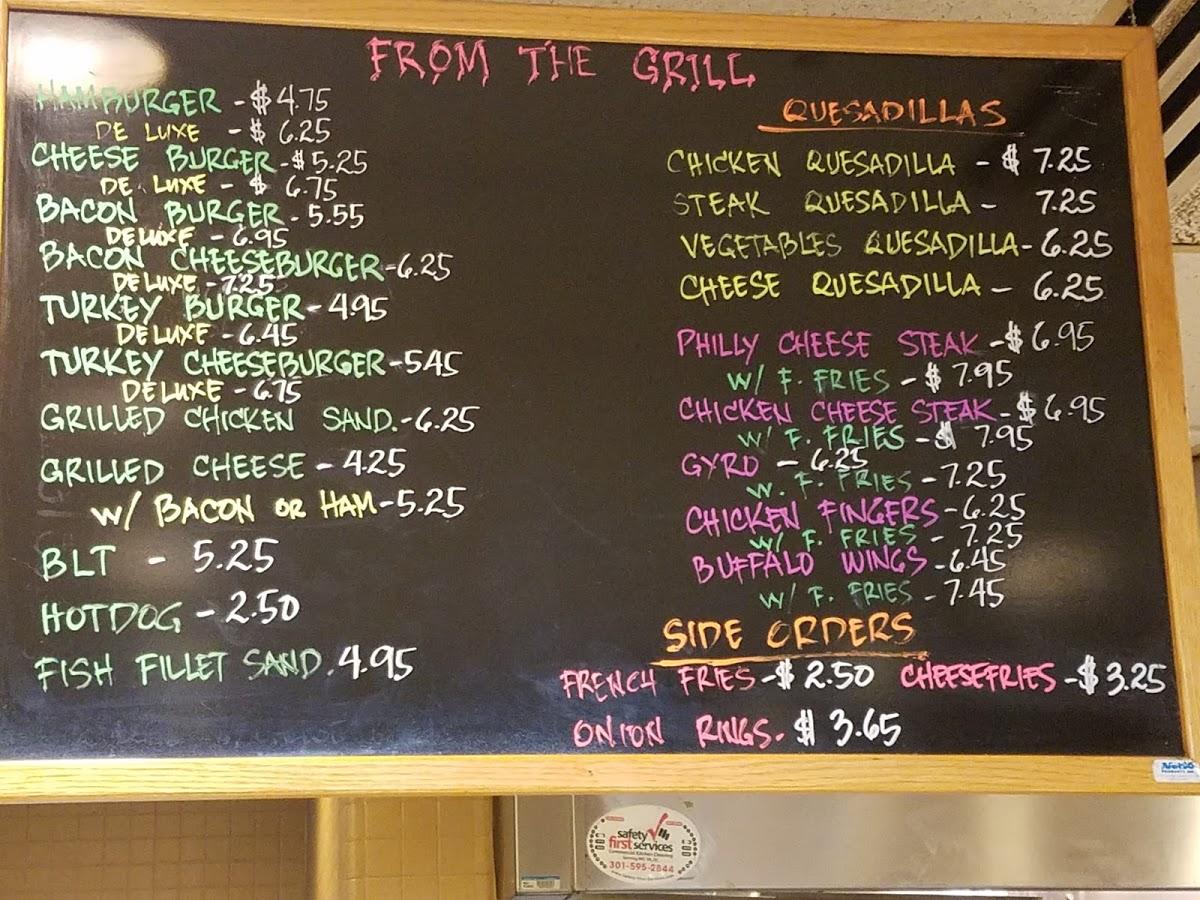 FROM THE GRILL
HAMBURGER - $ 4.75
DE LUXE - $ 6.25
CHEESE BURGER - $ 5.25
DE LUXE - $ 6.75
BACON BURGER - 5.55
DELUXE - 6.95
BACON CHEESEBURGER - 6.25
DELUXE - 7.25
TURKEY BURGER - 4.95
DELUXE - 6.45
TURKEY CHEESEBURGER - 5.45
DELUXE - 6.75
GRILLED CHICKEN SAND. - 6.25
GRILLED CHEESE - 4.25
W/ BACON OR HAM - 5.25
BLT - 5.25
HOTDOG - 2.50
FISH FILLET SAND. 4.95
QUESADILLAS
CHICKEN QUESADILLA - $ 7.25
STEAK QUESADILLA - 7.25
VEGETABLES QUESADILLA - 6.25
CHEESE QUESADILLA - 6.25
PHILLY CHEESE STEAK - $ 6.95
W/ F. FRIES - $ 7.95
CHICKEN CHEESE STEAK - $ 6.95
W/ F. FRIES - $ 7.95
GYRO - 6.25
W. F. FRIES - 7.25
CHICKEN FINGERS - 6.25
W/ F. FRIES - 7.25
BUFFALO WINGS - 6.45
W/ F. FRIES - 7.45
SIDE ORDERS
FRENCH FRIES - $ 2.50 CHEESEFRIES - $ 3.25
ONION RINGS. $ 3.65
safety
first services
Commercial Kitchen Cleaning
301-595-2844